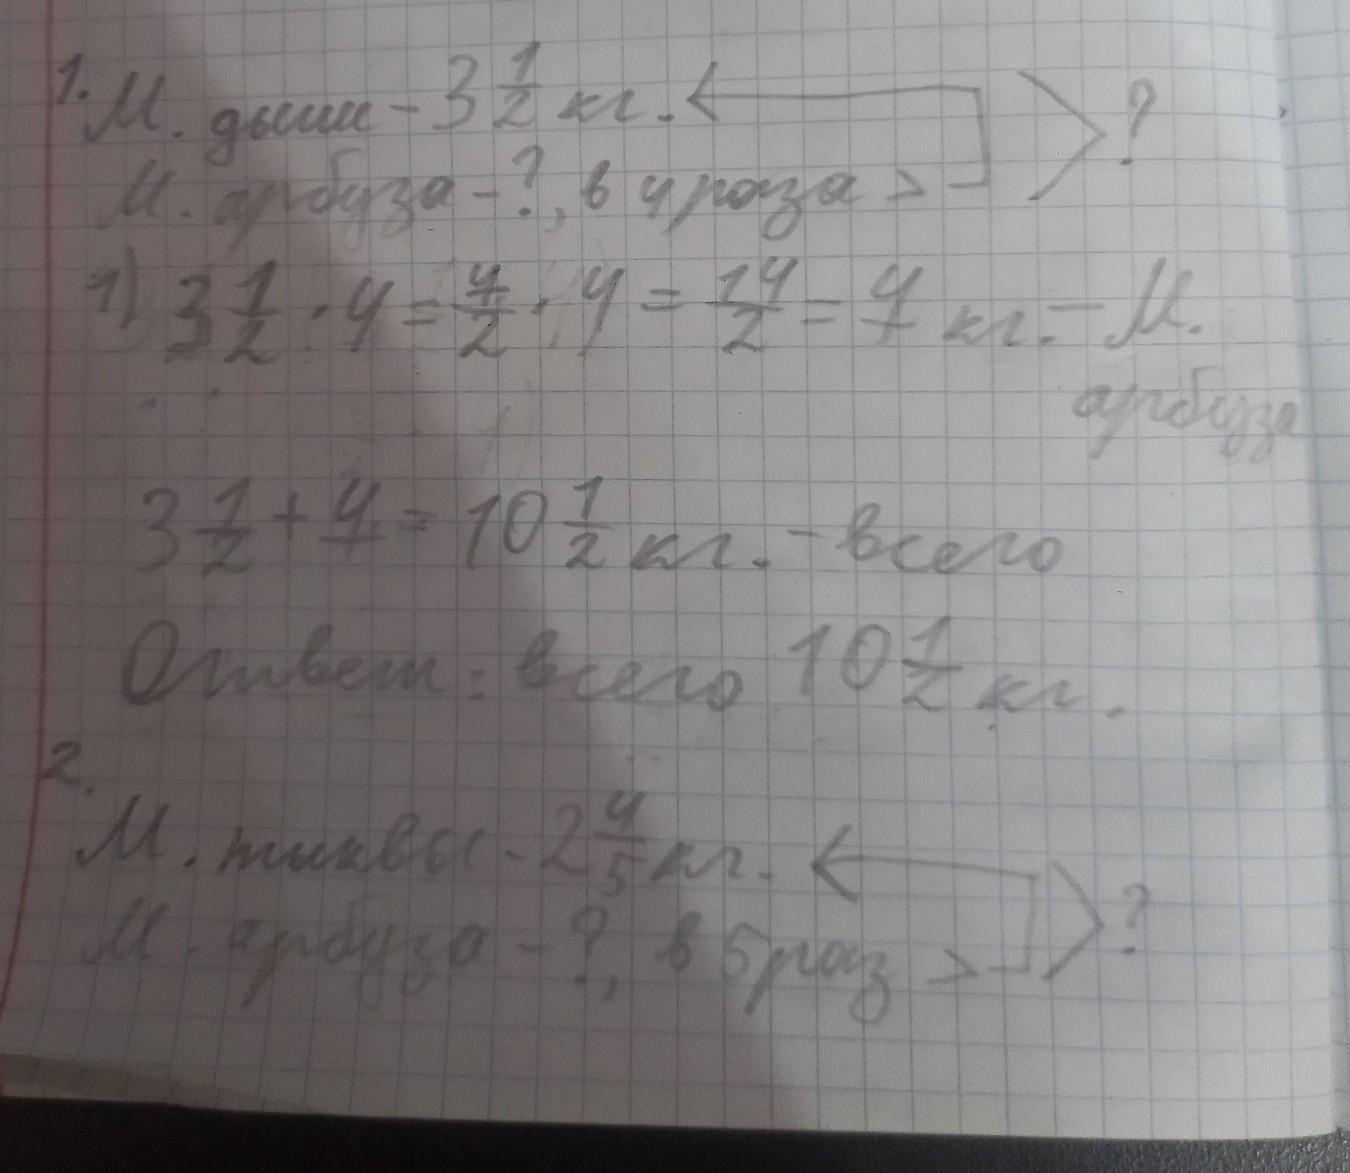 1. М. дыни - 3 1/2 кг. ?
М. арбуза - ?, в 4 раза >
1) 3 1/2 · 4 = 7/2 · 4 = 14/2 = 7 кг. - М.
арбуза
3 1/2 + 7 = 10 1/2 кг. - всего
Ответ: всего 10 1/2 кг.
2.
М. тыквы - 2 4/5 кг. ?
М. арбуза - ?, в 5 раз >